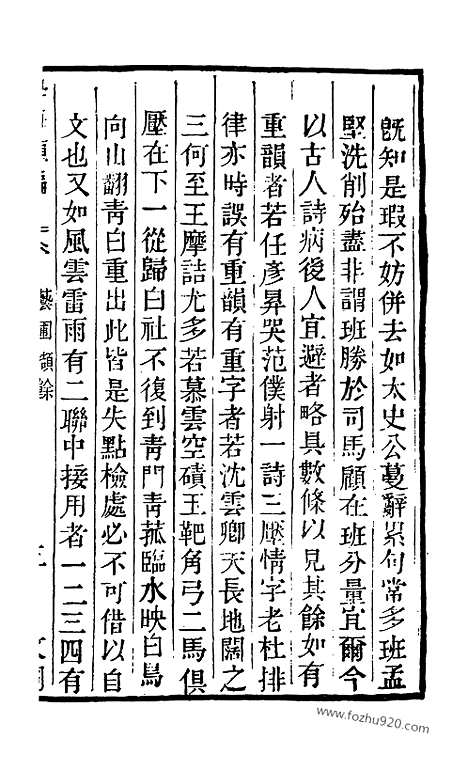 既知是瑕不妨併去如太史公蔓辭累句常多班孟
堅洗削殆盡非謂班勝於司馬顧在班分量宜爾今
以古人詩病後人宜避者略具數條以見其餘如有
重韻者若任彥昇哭范僕射一詩三壓情字老杜排
律亦時誤有重韻有重字者若沈雲卿天長地闊之
三何至王摩詰尤多若慕雲空磧玉靶角弓二馬俱
壓在下一從歸白社不復到青門青菰臨水映白鳥
向山翻青白重出此皆是失點檢處必不可借以自
文也又如風雲雷雨有二聯中接用者一二三四有
藝圃擷餘
www.fozhu920.com